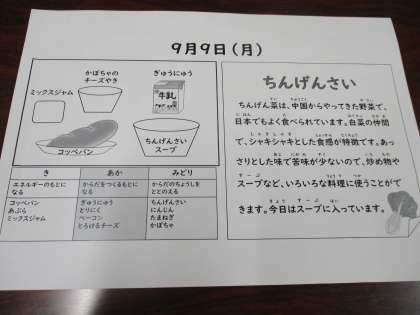 9月9日(月)
ミックスジャム
かぼちゃの
チーズやき
ぎゅうにゅう
牛乳
コッペパン
ちんげんさい
スープ
き
あか
みどり
エネルギーのもとに
なる
からだをつくるもとに
なる
からだのちょうしを
ととのえる
コッペパン
あぶら
ミックスジャム
ぎゅうにゅう
とりにく
ベーコン
とろけるチーズ
ちんげんさい
にんじん
たまねぎ
かぼちゃ
ちんげんさい
ちんげん菜は、中国からやってきた野菜で、
日本でもよく食べられています。白菜の仲間
で、シャキシャキとした食感が特徴です。あっ
さりとした味で苦味が少ないので、炒め物や
スープなど、いろいろな料理に使うことがで
きます。今日はスープに入っています。